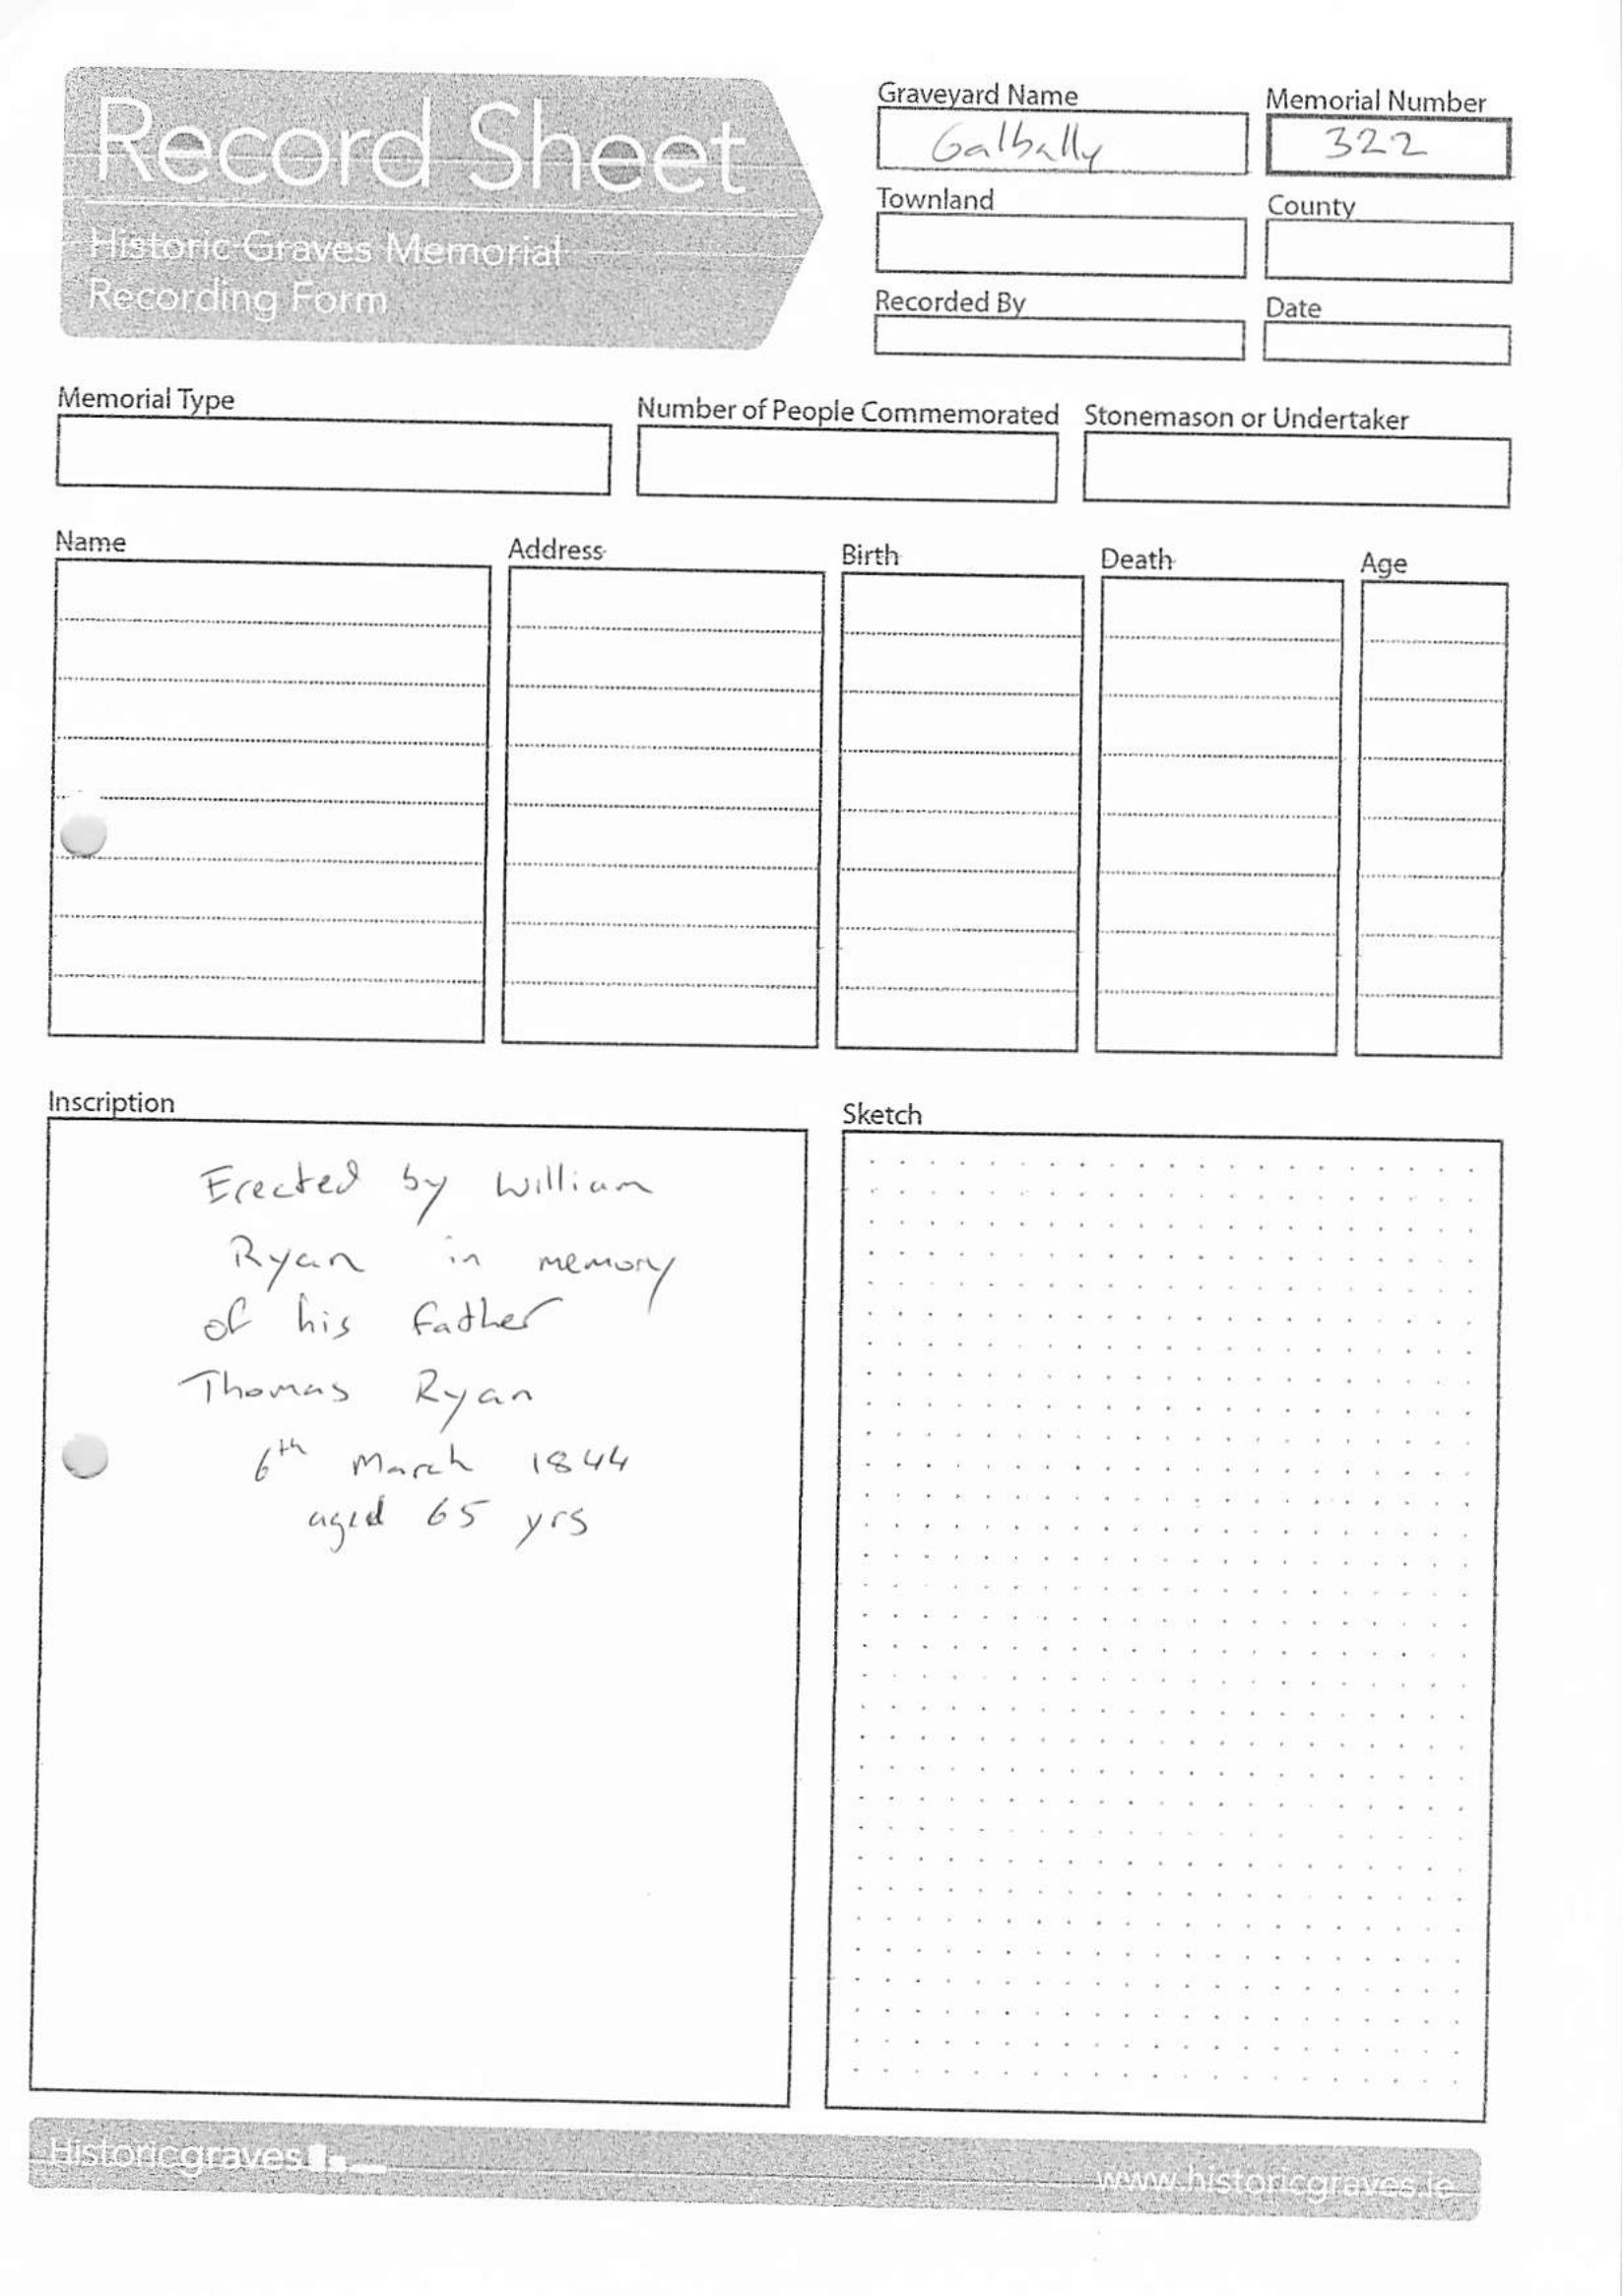 Record Sheet
Historic Graves Memorial
Recording Form
Graveyard Name
Galbally
Memorial Number
322
Townland
County
Recorded By
Date
Memorial Type
Number of People Commemorated
Stonemason or Undertaker
Name
Address
Birth
Death
Age
Inscription
Erected by William
Ryan in memory
of his father
Thomas Ryan
6th March 1844
aged 65 yrs
Sketch
Historicgraves
www.historicgraves.ie